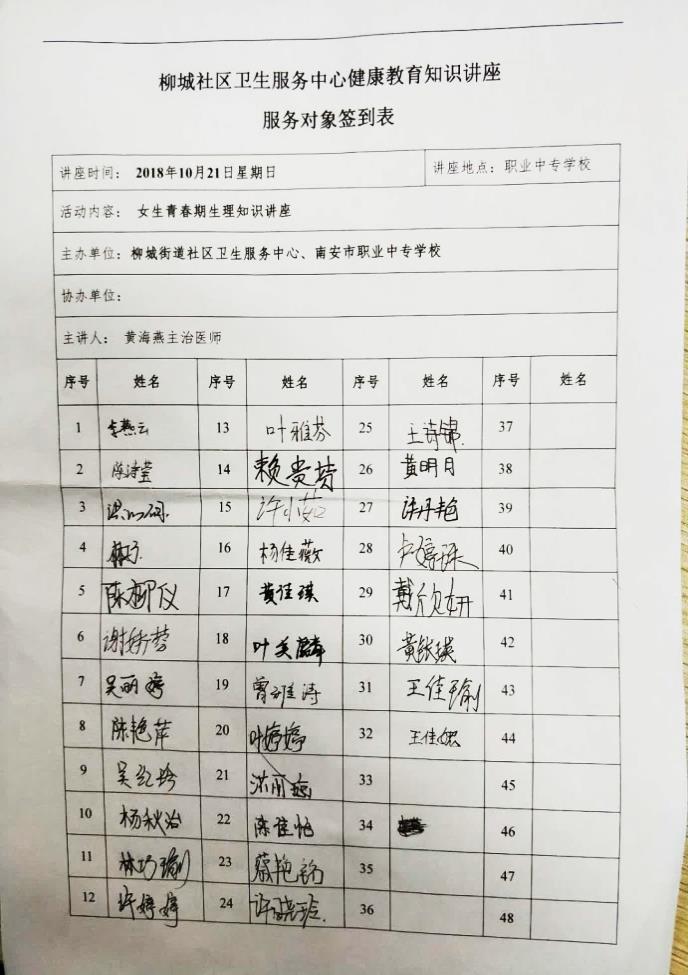 柳城社区卫生服务中心健康教育知识讲座
服务对象签到表
讲座时间： 2018年10月21日星期日 讲座地点：职业中专学校
活动内容： 女生青春期生理知识讲座
主办单位：柳城街道社区卫生服务中心、南安市职业中专学校
协办单位：
主讲人： 黄海燕主治医师
序号 姓名 序号 姓名 序号 姓名 序号 姓名
1 李燕云 13 叶雅芬 25 王诗锦 37
2 陈诗莹 14 赖贵 26 黄明月 38
3 15 许小茹 27 许丹艳 39
4 16 杨佳薇 28 卢婷 40
5 陈 仪 17 黄佳琪 29 戴欣妍 41
6 谢娇蓉 18 叶美麟 30 黄银瑛 42
7 吴丽婷 19 曾雅涛 31 王佳瑜 43
8 陈艳萍 20 叶婷婷 32 王佳 44
9 吴红玲 21 洪丽 33 45
10 杨秋治 22 陈佳怡 34 46
11 林巧瑜 23 蔡艳铭 35 47
12 许婷婷 24 许晓玲 36 48